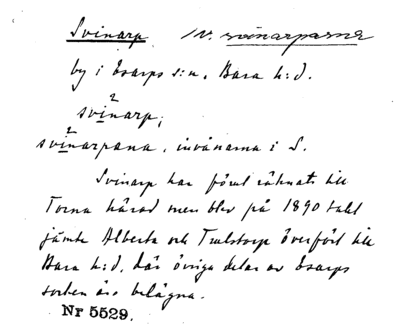 Svinarp  IV. svinarparna
by i Esarps s:n, Bara h:d.
svinarp,
svinarpana, invånarna i S.
Svinarp har förut räknats till
Torna härad men blev på 1890 talet
jämte Alberta och Trulstorp överfört till
Bara h:d, där övriga delar av Esarps
socken äro belägna.
Nr 5529.